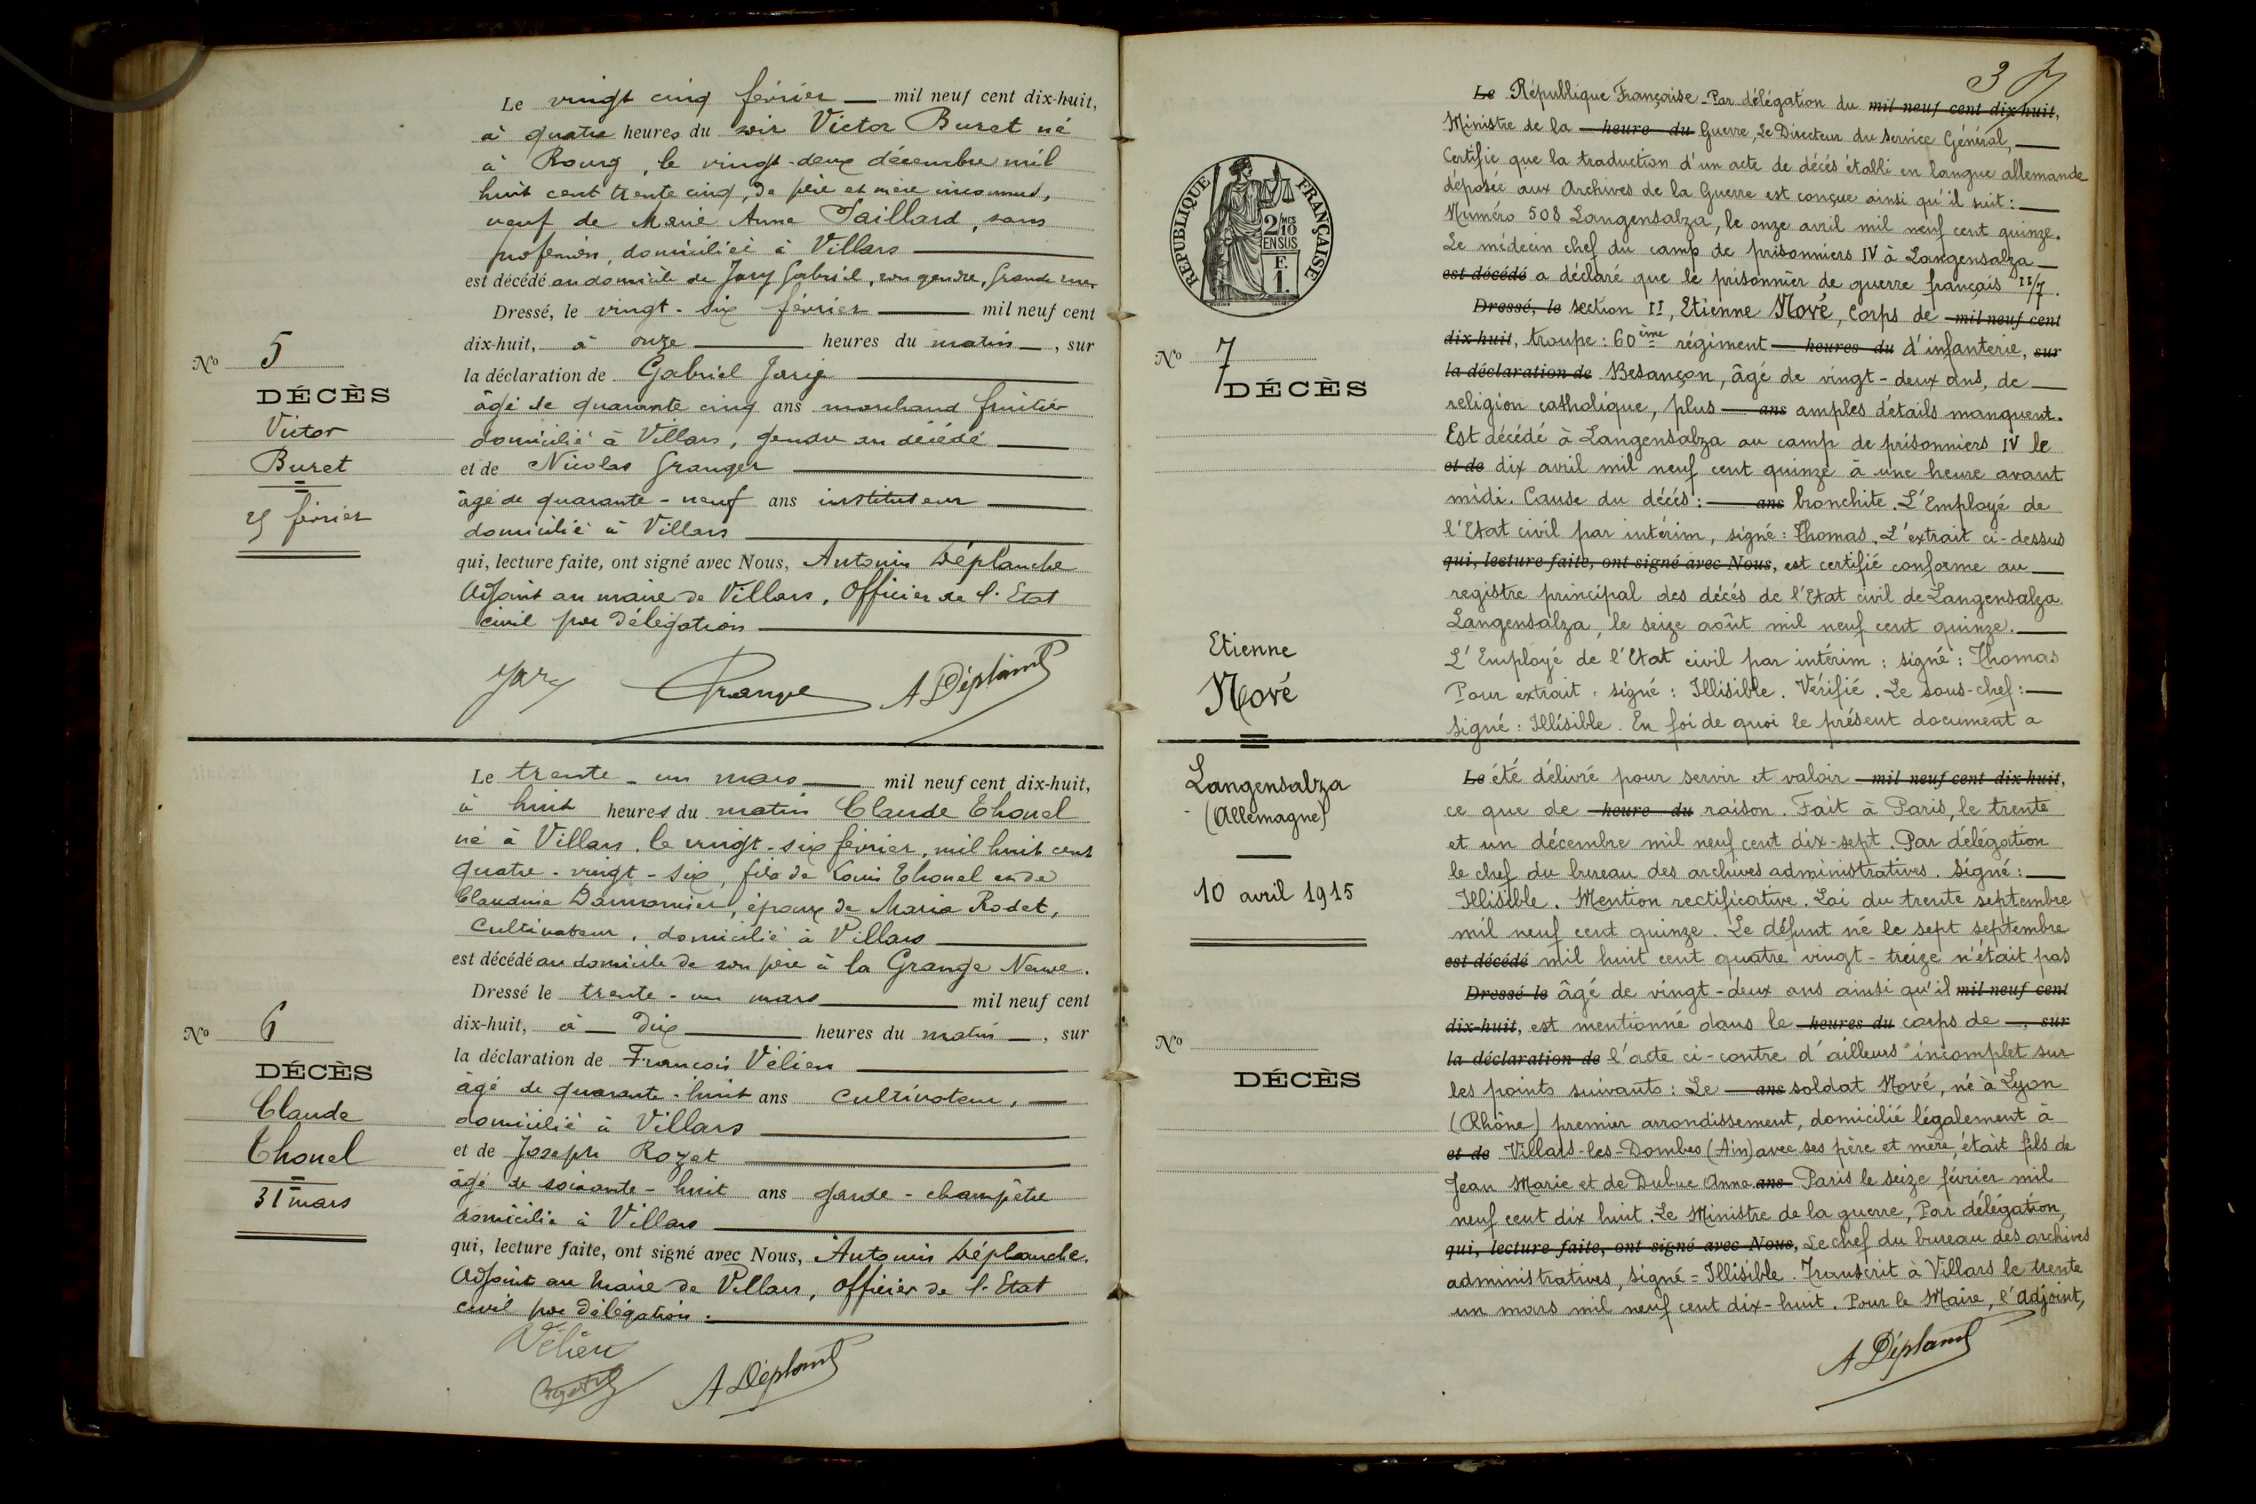 Le vingt cinq février mil neuf cent dix-huit,
à quatre heures du soir Victor Buret né
à Bourg, le vingt-deux décembre mil
huit cent trente cinq, de père et mère inconnus,
veuf de Marie Anne Taillard, sans
profession, domicilié à Villars
est décédé au domicile de Jary Gabriel, son gendre, Grande rue
Dressé, le vingt-six février mil neuf cent
dix-huit, à onze heures du matin, sur
la déclaration de Gabriel Jary
âgé de quarante cinq ans marchand fruitier
domicilié à Villars, gendre du décédé
et de Nicolas Granger
âgé de quarante-neuf ans instituteur
domicilié à Villars
qui, lecture faite, ont signé avec Nous, Antonin Déplanche
Adjoint au maire de Villars, Officier de l'Etat
civil par délégation
Jary Granger A Déplanche
No 5
DÉCÈS
Victor
Buret
25 février
Le trente-un mars mil neuf cent dix-huit,
à huit heures du matin Claude Thonel
né à Villars, le vingt-six février, mil huit cent
quatre-vingt-six, fils de Louis Thonel et de
Claudine, époux de Maria Rodet,
cultivateur, domicilié à Villars
est décédé au domicile de son père à la Grange Neuve.
Dressé le trente-un mars mil neuf cent
dix-huit, à dix heures du matin, sur
la déclaration de François Vélien
âgé de quarante-huit ans cultivateur,
domicilié à Villars
et de Joseph Rozat
âgé de soixante-huit ans garde-champêtre
domicilié à Villars
qui, lecture faite, ont signé avec Nous, Antonin Déplanche.
Adjoint au Maire de Villars, Officier de l'Etat
civil par délégation.
Vélien
A Déplanche
No 6
DÉCÈS
Claude
Thonel
31 mars
3
Le République Française. Par délégation du mil neuf cent dix-huit,
Ministre de la heure du Guerre, Le Directeur du Service Général,
Certifie que la traduction d'un acte de décès établi en langue allemande
déposée aux Archives de la Guerre est conçue ainsi qu'il suit:
Numéro 508 Langensalza, le onze avril mil neuf cent quinze.
Le médecin chef du camp de prisonniers IV à Langensalza
est décédé a déclaré que le prisonnier de guerre français II/7.
Dressé, le section II, Etienne Nové, Corps de mil neuf cent
dix-huit, troupe: 60ème régiment heures du d'infanterie, sur
la déclaration de Besançon, âgé de vingt-deux ans, de
religion catholique, plus ans amples détails manquent.
Est décédé à Langensalza au camp de prisonniers IV le
et de dix avril mil neuf cent quinze à une heure avant
midi. Cause du décès: ans bronchite. L'Employé de
l'Etat civil par intérim, signé: Thomas. L'extrait ci-dessus
qui, lecture faite, ont signé avec Nous, est certifié conforme au
registre principal des décès de l'Etat civil de Langensalza
Langensalza, le seize août mil neuf cent quinze.
L'Employé de l'Etat civil par intérim: signé: Thomas
Pour extrait: signé: Illisible. Vérifié. Le sous-chef:
Signé: Illisible. En foi de quoi le présent document a
Le été délivré pour servir et valoir mil neuf cent dix-huit,
ce que de heure du raison. Fait à Paris, le trente
et un décembre mil neuf cent dix-sept. Par délégation
le chef du bureau des archives administratives. Signé:
Illisible. Mention rectificative. Loi du trente septembre
mil neuf cent quinze. Le défunt né le sept septembre
est décédé mil huit cent quatre vingt-treize n'était pas
Dressé le âgé de vingt-deux ans ainsi qu'il mil neuf cent
dix-huit, est mentionné dans le heures du corps de , sur
la déclaration de l'acte ci-contre d'ailleurs incomplet sur
les points suivants: Le ans soldat Nové, né à Lyon
(Rhône) premier arrondissement, domicilié légalement à
et de Villars-les-Dombes (Ain) avec ses père et mère, était fils de
Jean Marie et de Dubuc Anna. ans Paris le seize février mil
neuf cent dix huit. Le Ministre de la guerre, Par délégation,
qui, lecture faite, ont signé avec Nous, Le chef du bureau des archives
administratives, signé = Illisible. Transcrit à Villars le trente
un mars mil neuf cent dix-huit. Pour le Maire, l'adjoint,
A Déplanche
RÉPUBLIQUE FRANÇAISE
2/10
EN SUS
F.
1.
No 7
DÉCÈS
Etienne
Nové
Langensalza
(Allemagne)
10 avril 1915
No
DÉCÈS